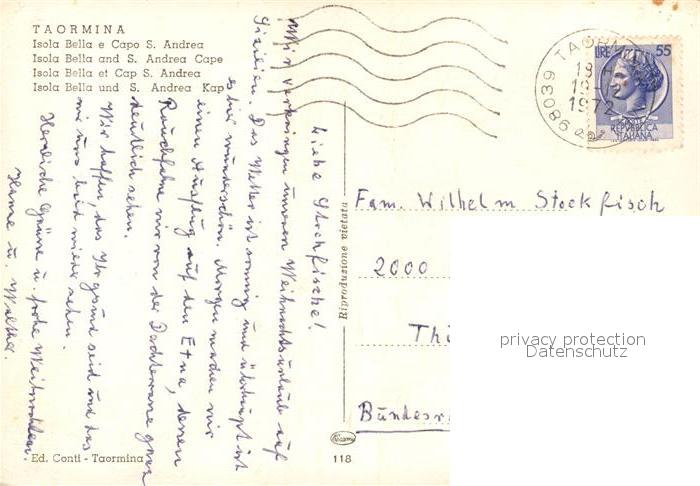 TAORMINA
Isola Bella e Capo S. Andrea
Isola Bella and S. Andrea Cape
Isola Bella et Cap S. Andrea
Isola Bella und S. Andrea Kap
Liebe Stockfische!
Wir verbringen unseren Weihnachtsurlaub auf
Sizilien. Das Wetter ist sonnig und überhaupt ist
es hier wunderschön. Morgen machen wir
einen Ausflug auf den Etna, dessen
Rauchfahne wir von der Dachterasse ganz
deutlich sehen.
Wir hoffen, das Ihr gesund seid und das
wir uns bald wieder sehen.
Herzliche Grüsse u. frohe Weihnachten.
Hanne u. Walther.
Ed. Conti - Taormina
118
Riproduzione vietata
98039 TAORMINA
1972
LIRE 55
REPUBBLICA
ITALIANA
Fam. Wilhelm Stockfisch
2000
Bundesr
privacy protection
Datenschutz